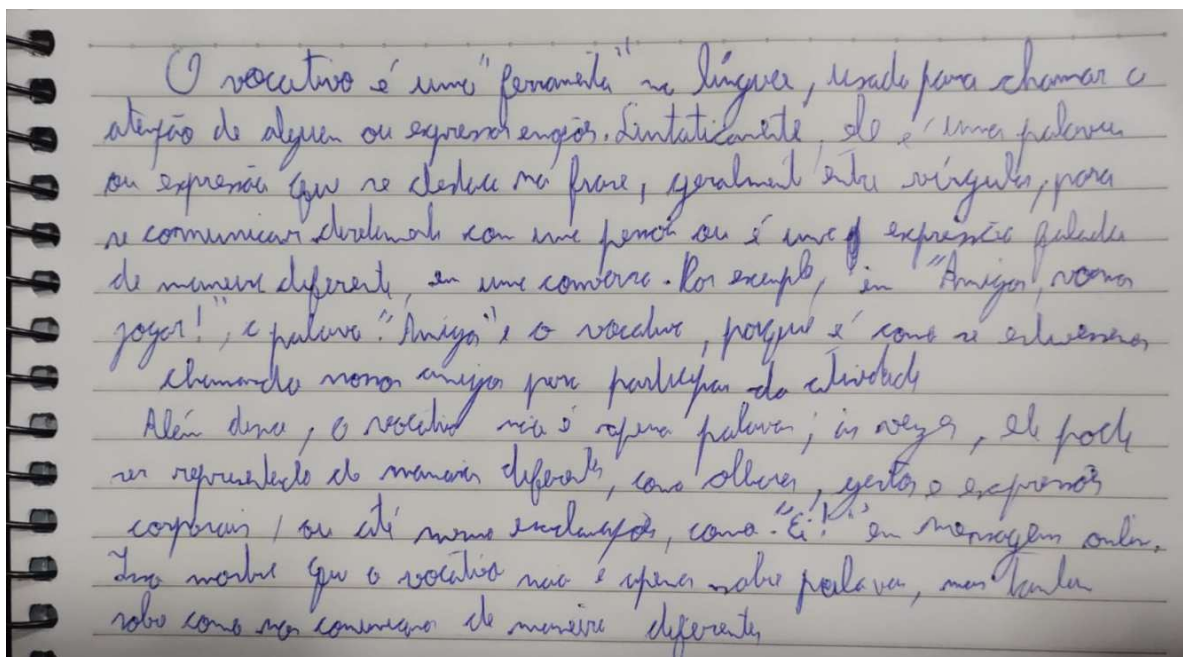 O vocativo é uma "ferramenta" na língua, usada para chamar a
atenção de alguem ou expressar emoções. Sintaticamente, ele é uma palavra
ou expressão que se destaca na frase, geralmente entre vírgulas, para
se comunicar diretamente com uma pessoa ou é uma expressão falada
de maneira diferente, em uma conversa. Por exemplo, em "Amigos, vamos
jogar!", a palavra "Amigos" é o vocativo, porque é como se estivessemos
chamando nossos amigos para participar da atividade
Além disso, o vocativo não é apenas palavras; às vezes, ele pode
ser representado de maneiras diferentes, como olhares, gestos e expressões
corporais, ou até mesmo exclamações, como "Ei!" em mensagens online.
Isso mostra que o vocativo não é apenas sobre palavras, mas também
sobre como nos comunicamos de maneira diferentes